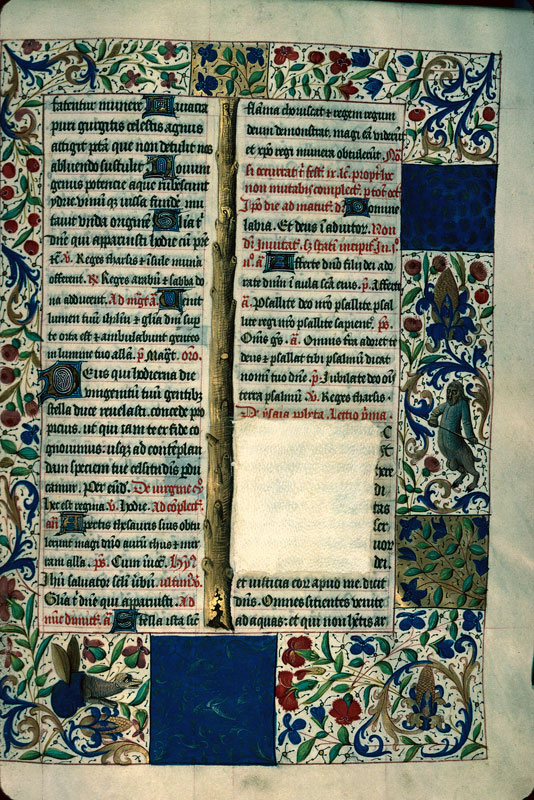 fatentur munere. A Lauacra
puri gurgitis celestis agnus
attigit pctā que non detulit nos
abluendo sustulit. Nouum
genus potencie aque rubescunt
ydrie vinū q̄ iussa fundē mu
tauit vnda originē. Gl̄ia t̄
dn̄e qui apparuisti hodie cū pr̄e
tc̄. V. Reges tharsis et insule munā
offerent. R Reges arabū et sabba do
na adducent. Ad maḡ. a. Venit
lumen tuū ihrlm̄ et gl̄ia dn̄i sup
te orta est et ambulabunt gentes
in lumine tuo alla. p̄. Maḡt. oro.
Deus qui hodierna die
vnigenitū tuū gentibꝫ
stella duce reuelasti. concede pro
picius. ut qui iam te ex fide co
gnouimus. usqꝫ ad contēplan
dam speciem tue celsitudīs pdu
camur. Per eūd. De virgine
hec est regina. v. hodie. Ad cōplect.
an. Apertis thesauris suis obtu
lerunt magi dn̄o aurū thus et mir
ram alla. ps. Cum iuoc̄. Hyn̄.
Ihū saluator scl̄i
Gl̄ia t̄ dn̄e qui apparuisti. Ad
nūc dimitt. ā. Stella ista sic̄
flāma choruscat et regem regum
deum demonstrat. magi eā viderūt
et xp̄o regi munera obtulerunt.
non mutabis complect.
die ad matut. Domine
labia. Et deus ī adiutor. Non
Inuitat. statī incipit
Afferte dn̄o filii dei ado
rate dn̄m ī aula sc̄a eius. p̄. Afferte
ā. Psallite deo nr̄o psallite psal
lite regi nr̄o psallite sapient̄. ps.
Om̄s gē. ā. Omnis tr̄a adoret te
deus et psallat tibi psalmū dicat
nomī tuo dn̄e. p̄. Iubilate deo oīs
terra psalmū. V. Reges tharsis.
De ysaia ppheta. Lectio pima
et iusticia cor apud me. dicit
dn̄s. Omnes sitientes venite
ad aquas: et qui non hētis ar